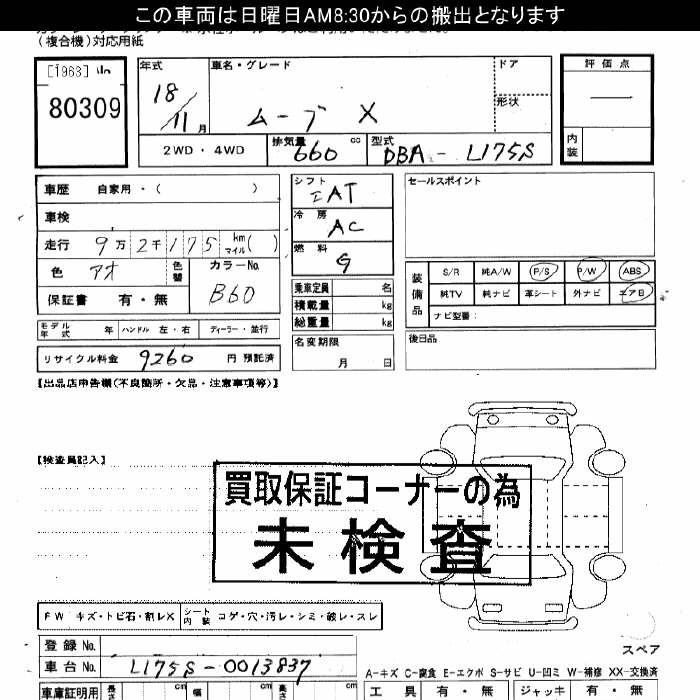 この車両は日曜日AM8:30からの搬出となります
(複合機)対応用紙
[1963]
80309
年式
18/11月
車名・グレード
ムーブ X
ドア
形状
評価点
内装
2WD・4WD
排気量
660 cc
型式
DBA-L175S
車歴 自家用・( )
車検
走行 9万2千175 km マイル( )
色 アオ 色替
カラーNo. B60
保証書 有・無
モデル年式 年 ハンドル 左・右 ディーラー・並行
リサイクル料金 9260 円 預託済
シフト
AT
冷房
AC
燃料
G
乗車定員 名
積載量 kg
総重量 kg
名変期限
月 日
セールスポイント
装備品
S/R 純A/W P/S P/W ABS
純TV 純ナビ 革シート 外ナビ エアB
ナビ型番:
後日品
【出品店申告欄(不良箇所・欠品・注意事項等)】
【検査員記入】
買取保証コーナーの為
未検査
FW キズ・トビ石・割レX シート内装 コゲ・穴・汚レ・シミ・破レ・スレ
登録No.
車台No. L175S-0013837
スペア
A-キズ C-腐食 E-エクボ S-サビ U-凹ミ W-補修 XX-交換済
車庫証明用 長さ cm 幅 cm 高さ cm
工具 有・無 ジャッキ 有・無